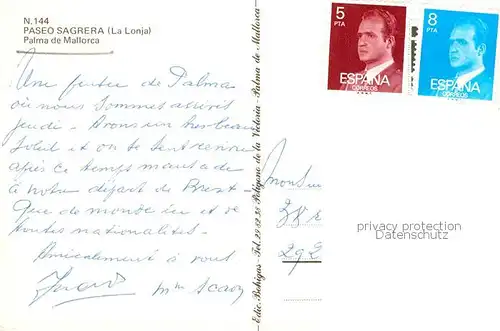 N.144
PASEO SAGRERA (La Lonja)
Palma de Mallorca
5
PTA
ESPAÑA
CORREOS
8
PTA
ESPAÑA
CORREOS
Une pensée de Palma
où nous sommes arrivés
jeudi. Avons un très beau
soleil et on te sent revivre
après ce temps maussade
à notre départ de Brest.
Que de monde ici et de
toutes nationalités.
Amicalement à vous
Mme
Edic. Bohigas - Tel. 29 62 58 Poligono de la Victoria - Palma de Mallorca
Monsieur
292
privacy protection
Datenschutz